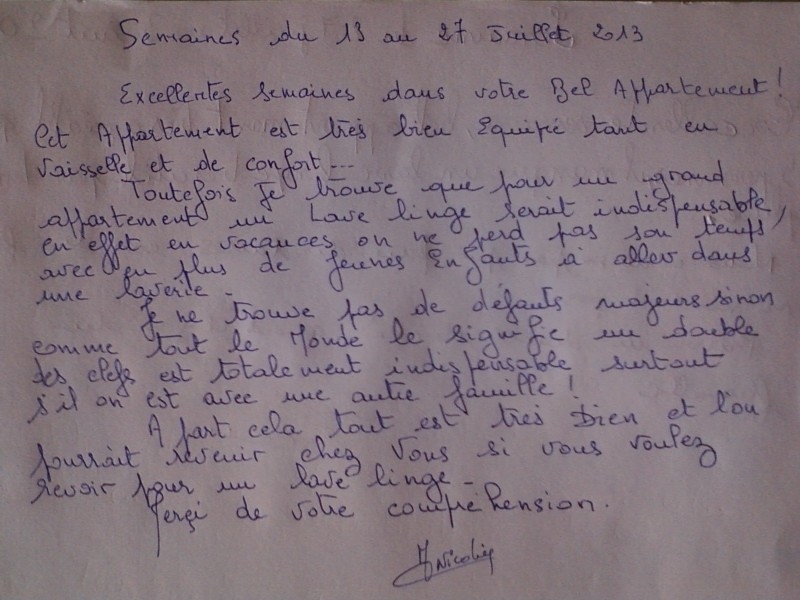 Semaines du 13 au 27 Juillet 2013
Excellentes semaines dans votre Bel Appartement !
Cet Appartement est très bien Equipé tant en
vaisselle et de confort ---
Toutefois Je trouve que pour un grand
appartement un Lave linge serait indispensable,
en effet en vacances on ne perd pas son temps
avec en plus de jeunes Enfants à aller dans
une laverie -
Je ne trouve pas de défauts majeurs sinon
comme tout le Monde le signifie un double
des clefs est totalement indispensable surtout
s'il on est avec une autre famille !
A part cela tout est très Bien et l'on
pourrait revenir chez Vous si vous voulez
revoir pour un lave linge -
Merçi de votre compréhension.